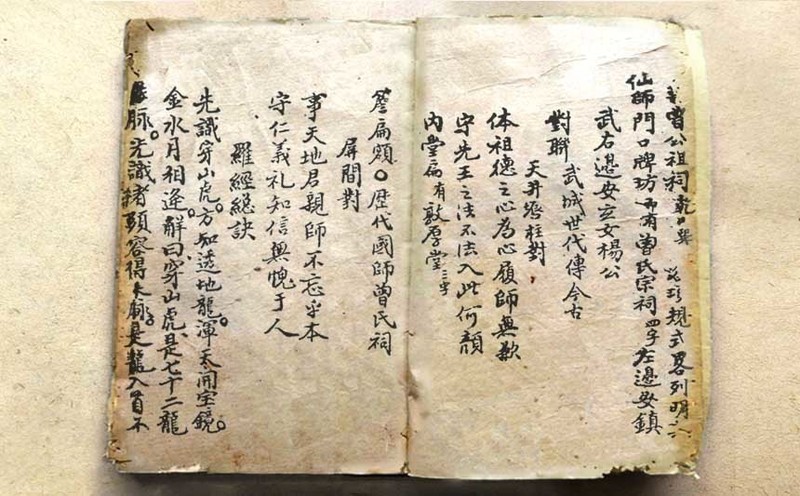 曾公祖祠乾巽 規式畧列明
仙師門口牌坊有曾氏宗祠四字左邊安鎮
武右邊安立文楊公
對聯 武城世代傳今古
天井磴柱對
体祖德之心為心履師無歉
守先王之法不法入此何顏
內堂扁有敦厚堂三字
簷扁額〇歷代國師曾氏祠
屏間對
事天地君親師不忘乎本
守仁義礼知信無愧于人
羅經總訣
先識穿山虎。方知透地龍。渾天開宝鏡。
金水月相逢。解曰穿山虎。是七十二龍
脉。先識緒頭容得脉。是龍入首不